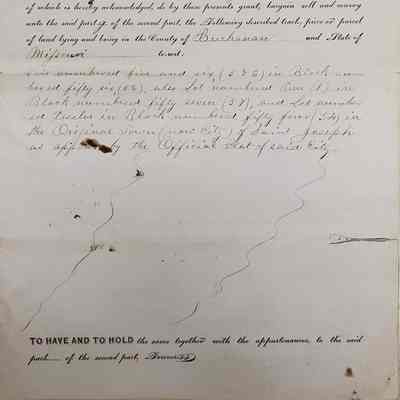 of which is hereby acknowledged, do by these presents grant, bargain sell and convey
unto the said part of the second part, the following described tract, piece or parcel
of land lying and being in the County of Buchanan and State of
Missouri to wit.
numbered five and six (5 & 6) in Block num-
bered fifty six (56), also Lot numbered (1) in
Block numbered fifty seven (57), and Lot number-
ed Twelve in Block numbered fifty four (54) in
the Original Town (now City) of Saint Joseph
as appears by the Official Plat of said City.
TO HAVE AND TO HOLD the same together with the appurtenances to the said
part of the second part,